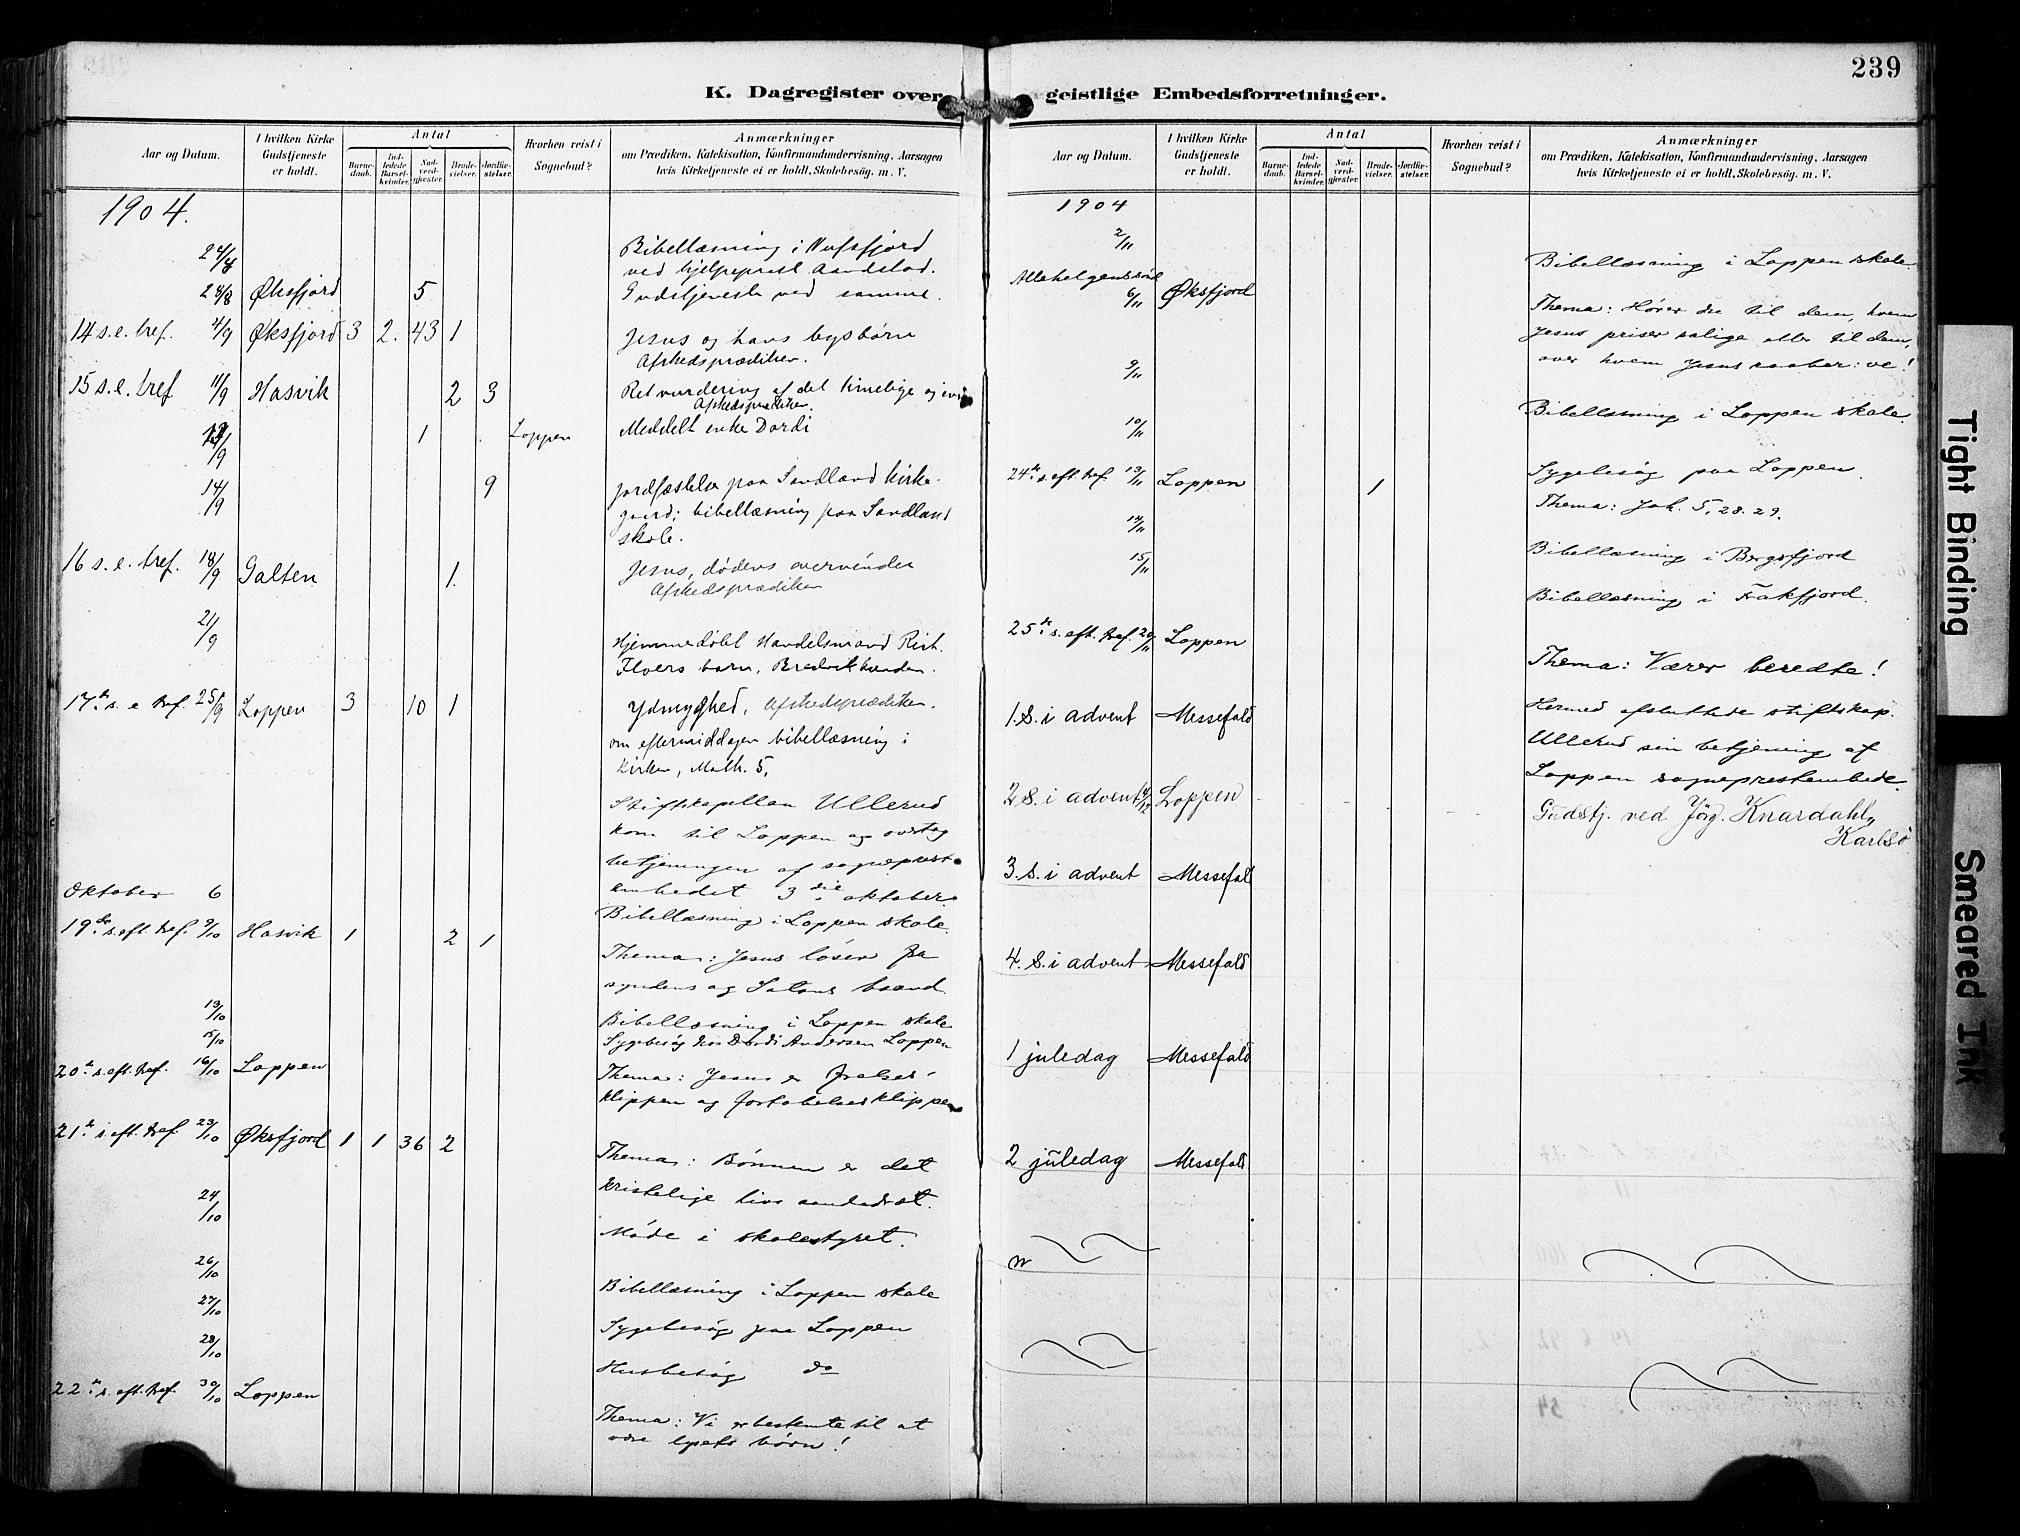 239
K. Dagregister over geistlige Embedsforretninger.
Aar og Datum.
I hvilken Kirke Gudstjeneste er holdt.
Antal
Barnedaab.
Indledede Barselkvinder.
Nadverdgjæster.
Brudevielser.
Jordfæstelser.
Hvorhen reist i Sognebud?
Anmærkninger
om Prædiken, Katekisation, Konfirmandundervisning, Aarsagen
hvis Kirketjeneste ei er holdt, Skolebesøg. m. V.
1904.
24/8 Bibellæsning i Nufsfjord
ved hjelpeprest Aandstad.
28/8 Øksfjord 5 Gudstjeneste ved samme.
14 s.e. tref. 4/9 Øksfjord 3 2. 43 1 Jesus og hans bysbørn
Afskedsprædiken.
15 s.e. tref 11/9 Hasvik 2 3 Ret vurdering af det timelige og
Afskedsprædiken.
13/9 1 Loppen Meddelt enke Dordi
14/9 9 Jordfæstelse paa Sandland kirke-
gaard; bibellæsning paa Sandland
skole.
16 s.e. tref. 18/9 Galten 1. Jesus, dødens overvinder
Afskedsprædiken
21/9 Hjemmedøbt Handelsmand Rich.
Floers barn, Bredvikbunden.
17de s. e tref. 25/9 Loppen 3 10 1 Ydmyghed, Afskedsprædiken.
om eftermiddagen bibellæsning i
kirken, Math. 5,
Stiftskapellan Ullerud
kom til Loppen og overtog
betjeningen af sogneprest-
embedet 3die oktober.
Oktober 6 Bibellæsning i Loppen skole.
19de s. eft. tref. 9/10 Hasvik 1 2 1 Thema: Jesus løser fra
syndens og Satans baand.
13/10 Bibellæsning i Loppen skole
15/10 Sygebesøg hos Dordi Andersen Loppen
20de s. eft. tref. 16/10 Loppen Thema: Jesus er frelses-
klippen og fortabelsesklippen
21de s. eft. tref 23/10 Øksfjord 1 1 36 2 Thema: Bønnen er det
kristelige livs aandedræt.
24/10 Møde i skolestyret.
26/10 Bibellæsning i Loppen skole
27/10 Sygebesøg paa Loppen
28/10 Husbesøg do
22de s. eft. tref. 30/10 Loppen Thema: Vi er bestemte til at
være lysets børn!
Aar og Datum.
I hvilken Kirke Gudstjeneste er holdt.
Antal
Barnedaab.
Indledede Barselkvinder.
Nadverdgjæster.
Brudevielser.
Jordfæstelser.
Hvorhen reist i Sognebud?
Anmærkninger
om Prædiken, Katekisation, Konfirmandundervisning, Aarsagen
hvis Kirketjeneste ei er holdt, Skolebesøg. m. V.
1904
2/11 Bibellæsning i Loppen skole.
Allehelgenssønd. 6/11 Øksfjord Thema: Hører du til dem, hvem
Jesus priser salige eller til dem,
over hvem Jesus raaber: ve!
9/11 Bibellæsning i Loppen skole.
10/11 Sygebesøg paa Loppen.
24de s. eft. tref 13/11 Loppen 1 Thema: Joh. 5, 28. 29.
14/11 Bibellæsning i Bergsfjord
15/11 Bibellæsning i Frakfjord.
25de s. eft. tref. 20/11 Loppen Thema: Værer beredte!
Hermed afsluttede stiftskap.
Ullerud sin betjening af
Loppen sogneprestembede.
1. S. i advent Messefald
2 S. i advent 4/12 Loppen Gudstj. ved Jörg. Knardahl,
Karlsö
3. S. i advent Messefald
4. S. i advent Messefald
1 juledag Messefald
2 juledag Messefald
Tight Binding
Smeared Ink